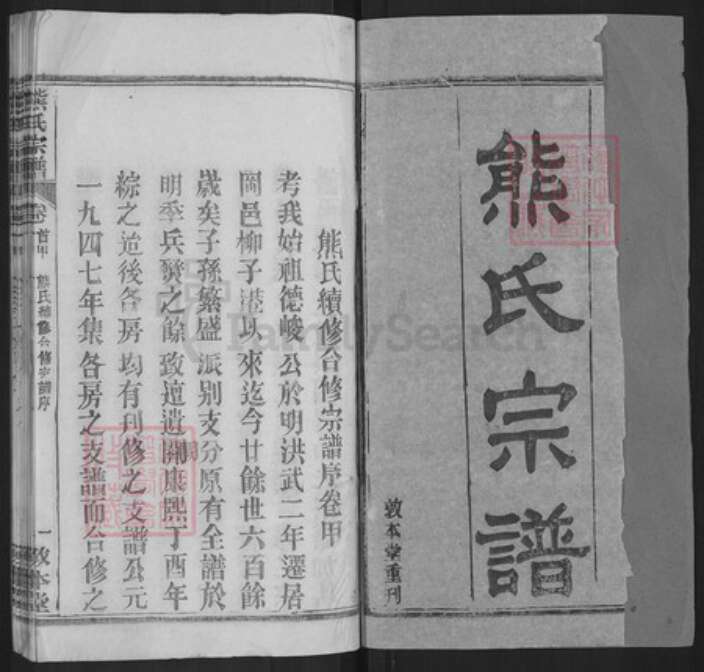 熊氏宗譜
敦本堂重刊
熊氏續修合修宗譜序卷甲
考我始祖德峻公於明洪武二年遷居
岡邑柳子港以來迄今廿餘世六百餘
歲矣子孫繁盛派別支分原有全譜於
明季兵燹之餘致遭遺闕康熙丁酉年
綜之迨後各房均有刊修之支譜公元
一九四七年集各房之支譜而合修之
熊氏宗譜 卷首甲 熊氏續修合修宗譜序 一 敦本堂
FamilySearch